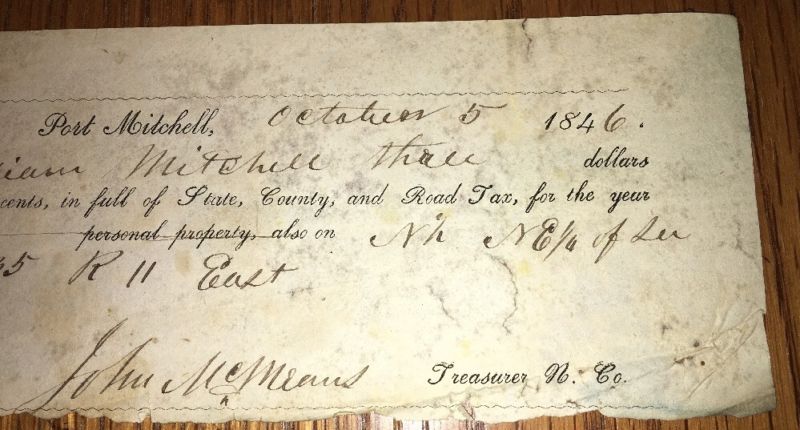 Port Mitchell, October 5 1846.
iam Mitchell three dollars
cents, in full of State, County, and Road Tax, for the year
personal property, also on N½ NE¼ of Sec
35 R 11 East
John McMeans Treasurer N. Co.